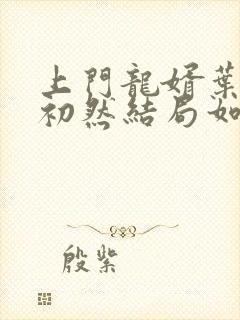 上門龍婿葉
初然結局如
殷紫